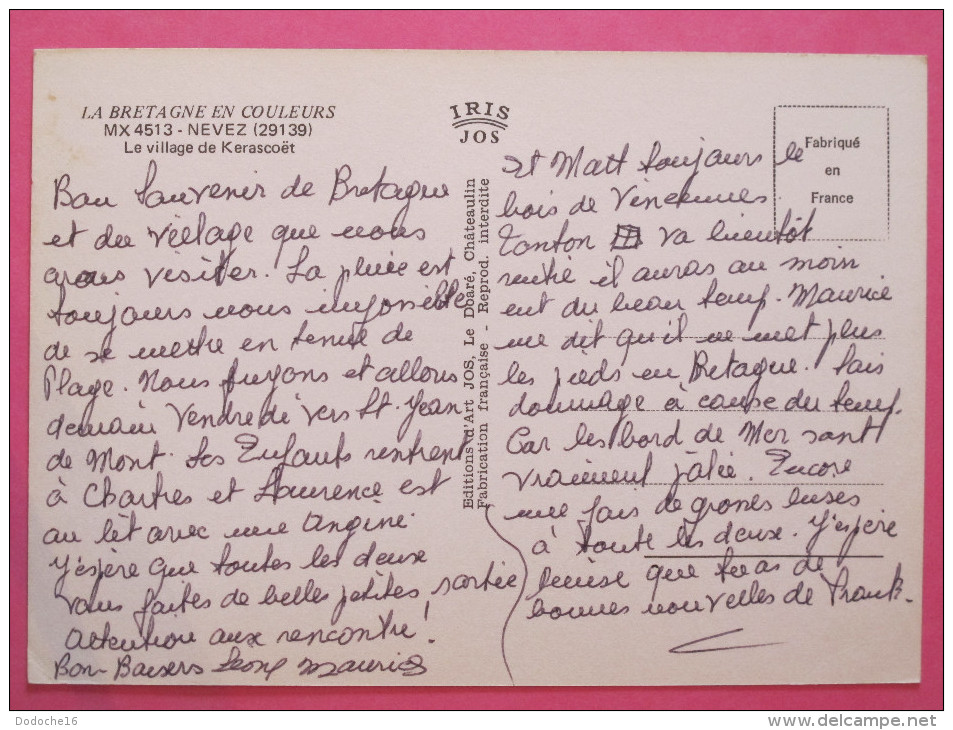 LA BRETAGNE EN COULEURS
MX 4513 - NEVEZ (29139)
Le village de Kerascoët
IRIS
JOS
Fabriqué
en
France
Editions d'Art JOS, Le Doaré, Châteaulin
Fabrication française - Reprod. interdite
Bon Souvenir de Bretagne
et du village que nous
avons visiter. La pluie est
toujours nous impossible
de se mettre en tenue de
Plage. Nous fuyons et allons
demain Vendredi vers St. Jean
de Mont. Les Enfants rentrent
à Chartres et Laurence est
au lit avec une Angine.
J'espère que toutes les deux
vous faites de belles petites sortie
attention aux rencontre!
Bon Baisers Maurice
et Matt toujours le
bois de Vincennes.
Tonton va bientôt
il auras au moin
eut du beau temp. Maurice
me dit qu'il ne met plus
les pieds en Bretagne. Fais
dommage à cause du temp.
Car les bord de Mer sont
vraiment jolie. Encore
une fois de grosses bises
à toute les deux. J'espère
que tu as de
bonnes nouvelles de Franck.
Dodoche16
www.delcampe.net